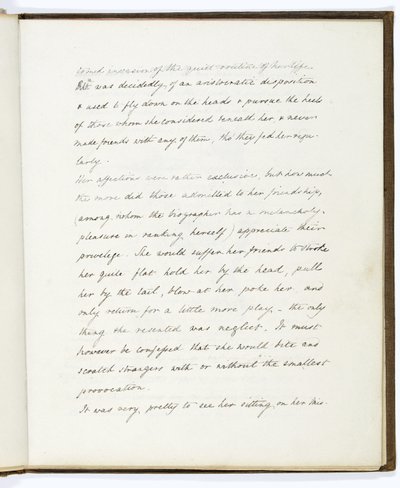 sional excursion of the quiet routine of her life.
Ath^a was decidedly of an aristocratic disposition
& used to fly down on the heads & pursue the heels
of those whom she considered beneath her, & never
made friends with any of them, tho' they fed her regu-
larly.
Her affections were rather exclusive, but how much
the more did those admitted to her friendship,
(among whom the biographer has a melancholy
pleasure in ranking herself) appreciate their
privilege. She would suffer her friends to stroke
her quite flat hold her by the head, pull
her by the tail, blow at her poke her and
only return for a little more play, - the only
thing she resented was neglect. It must
however be confessed that she would bite and
scratch strangers with or without the smallest
provocation.
It was very pretty to see her sitting on her mis-